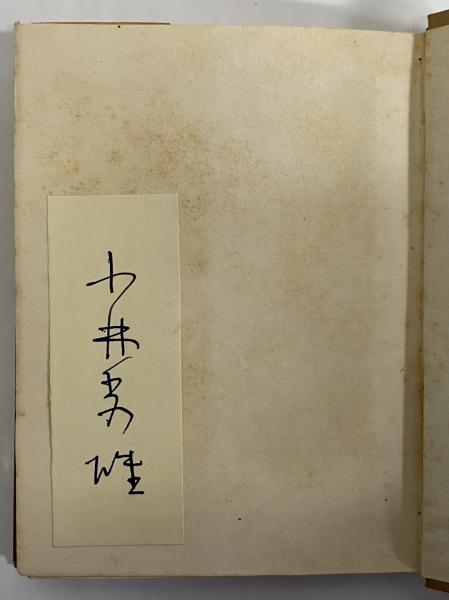 小林秀雄